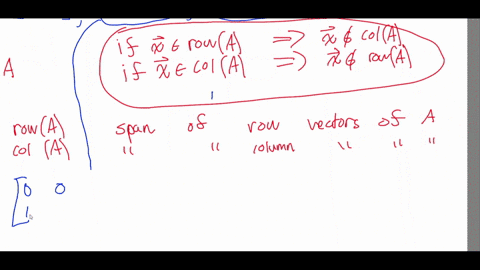 if x⃗ ∈ row(A) ⇒ x⃗ ∉ col(A)
if x⃗ ∈ col(A) ⇒ x⃗ ∉ row(A)
A
row(A) span of row vectors of A
col (A) " " column " " "
[0 0
1